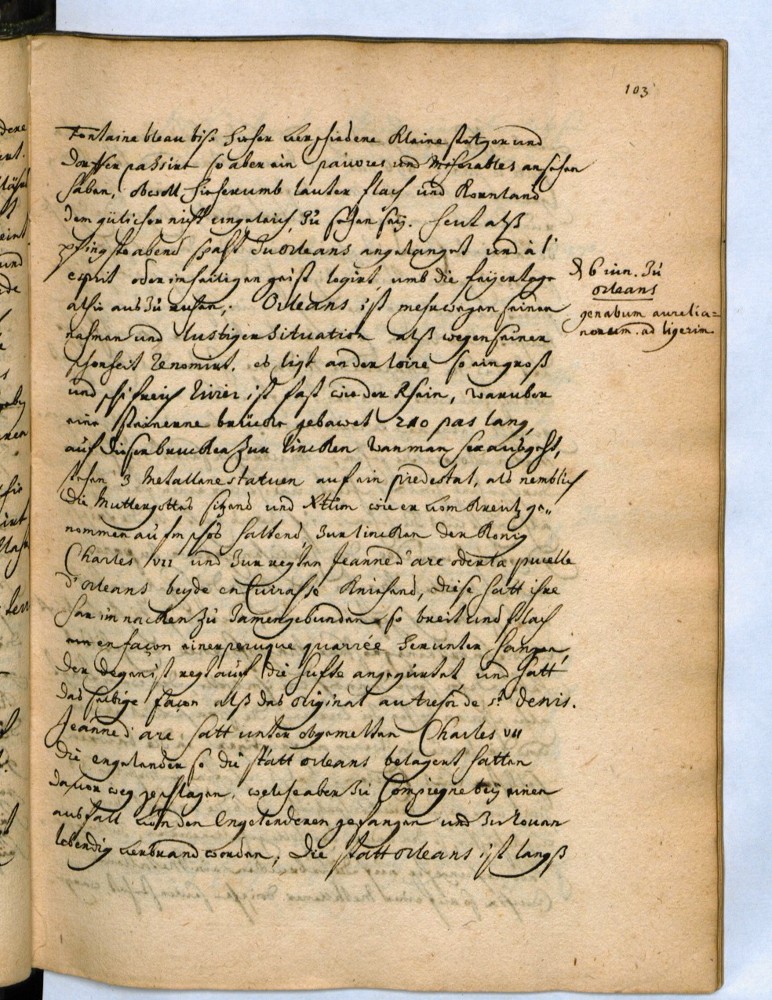 103
Fontainebleau biß hieher verschiedene kleine stätger und
Dorffer passirt so aber ein pauvres und miserables ansehen
haben, obwoll hieherumb lauter flach und Kornland
dem gülicher nicht ungleich, zu sehen seÿ. heut alß
pfingstabend spaht zu orleans angelanget und à l'
esprit oder im heiligen geist logirt, umb die feijertage
alhie auszuruhen. Orleans ist mehr wegen seinen
nahmen und lustiger Situation alß wegen seiner
schönheit renomirt. es ligt an der loire so ein groß
und schifreich Rivier ist fast wie der Rhein, waruber
eine steinerne brücke gebawet 200 pas lang,
auf dieser brucken zur lincken wan man herausgeht,
stehen 3 Metallene statuen auf ein piedestal, als nemblich
die Muttergottes sitzend und Xstum wie er vom Kreutz ge„
nommen auf ihr schos haltend, zur lincken der König
Charles VII und zur rechten Jeanne d'arc oder la pucelle
d'orleans beyde en Cuirasse Kniehend, diese hatt ihre
har im nacken zu samen gebunden so breit und flach
en façon einer peruque quarrée herunter hangen,
der degen ist rechts auf die hufte angegürtet und hatt
das selbige façon alß das original au tresor de st. denis.
Jeanne d'arc hatt unter obgemelten Charles VII
die engelander so die statt orleans belagert hatten
davon weg geschlagen, welche aber zu Compiegne beÿ einen
ausfall von den Engelenderen gefangen und zu Rouan
lebendig verbrand worden, Die statt orleans ist langß
D 6 iun. zu
orleans
genabum aurelia=
norum. ad ligerim.